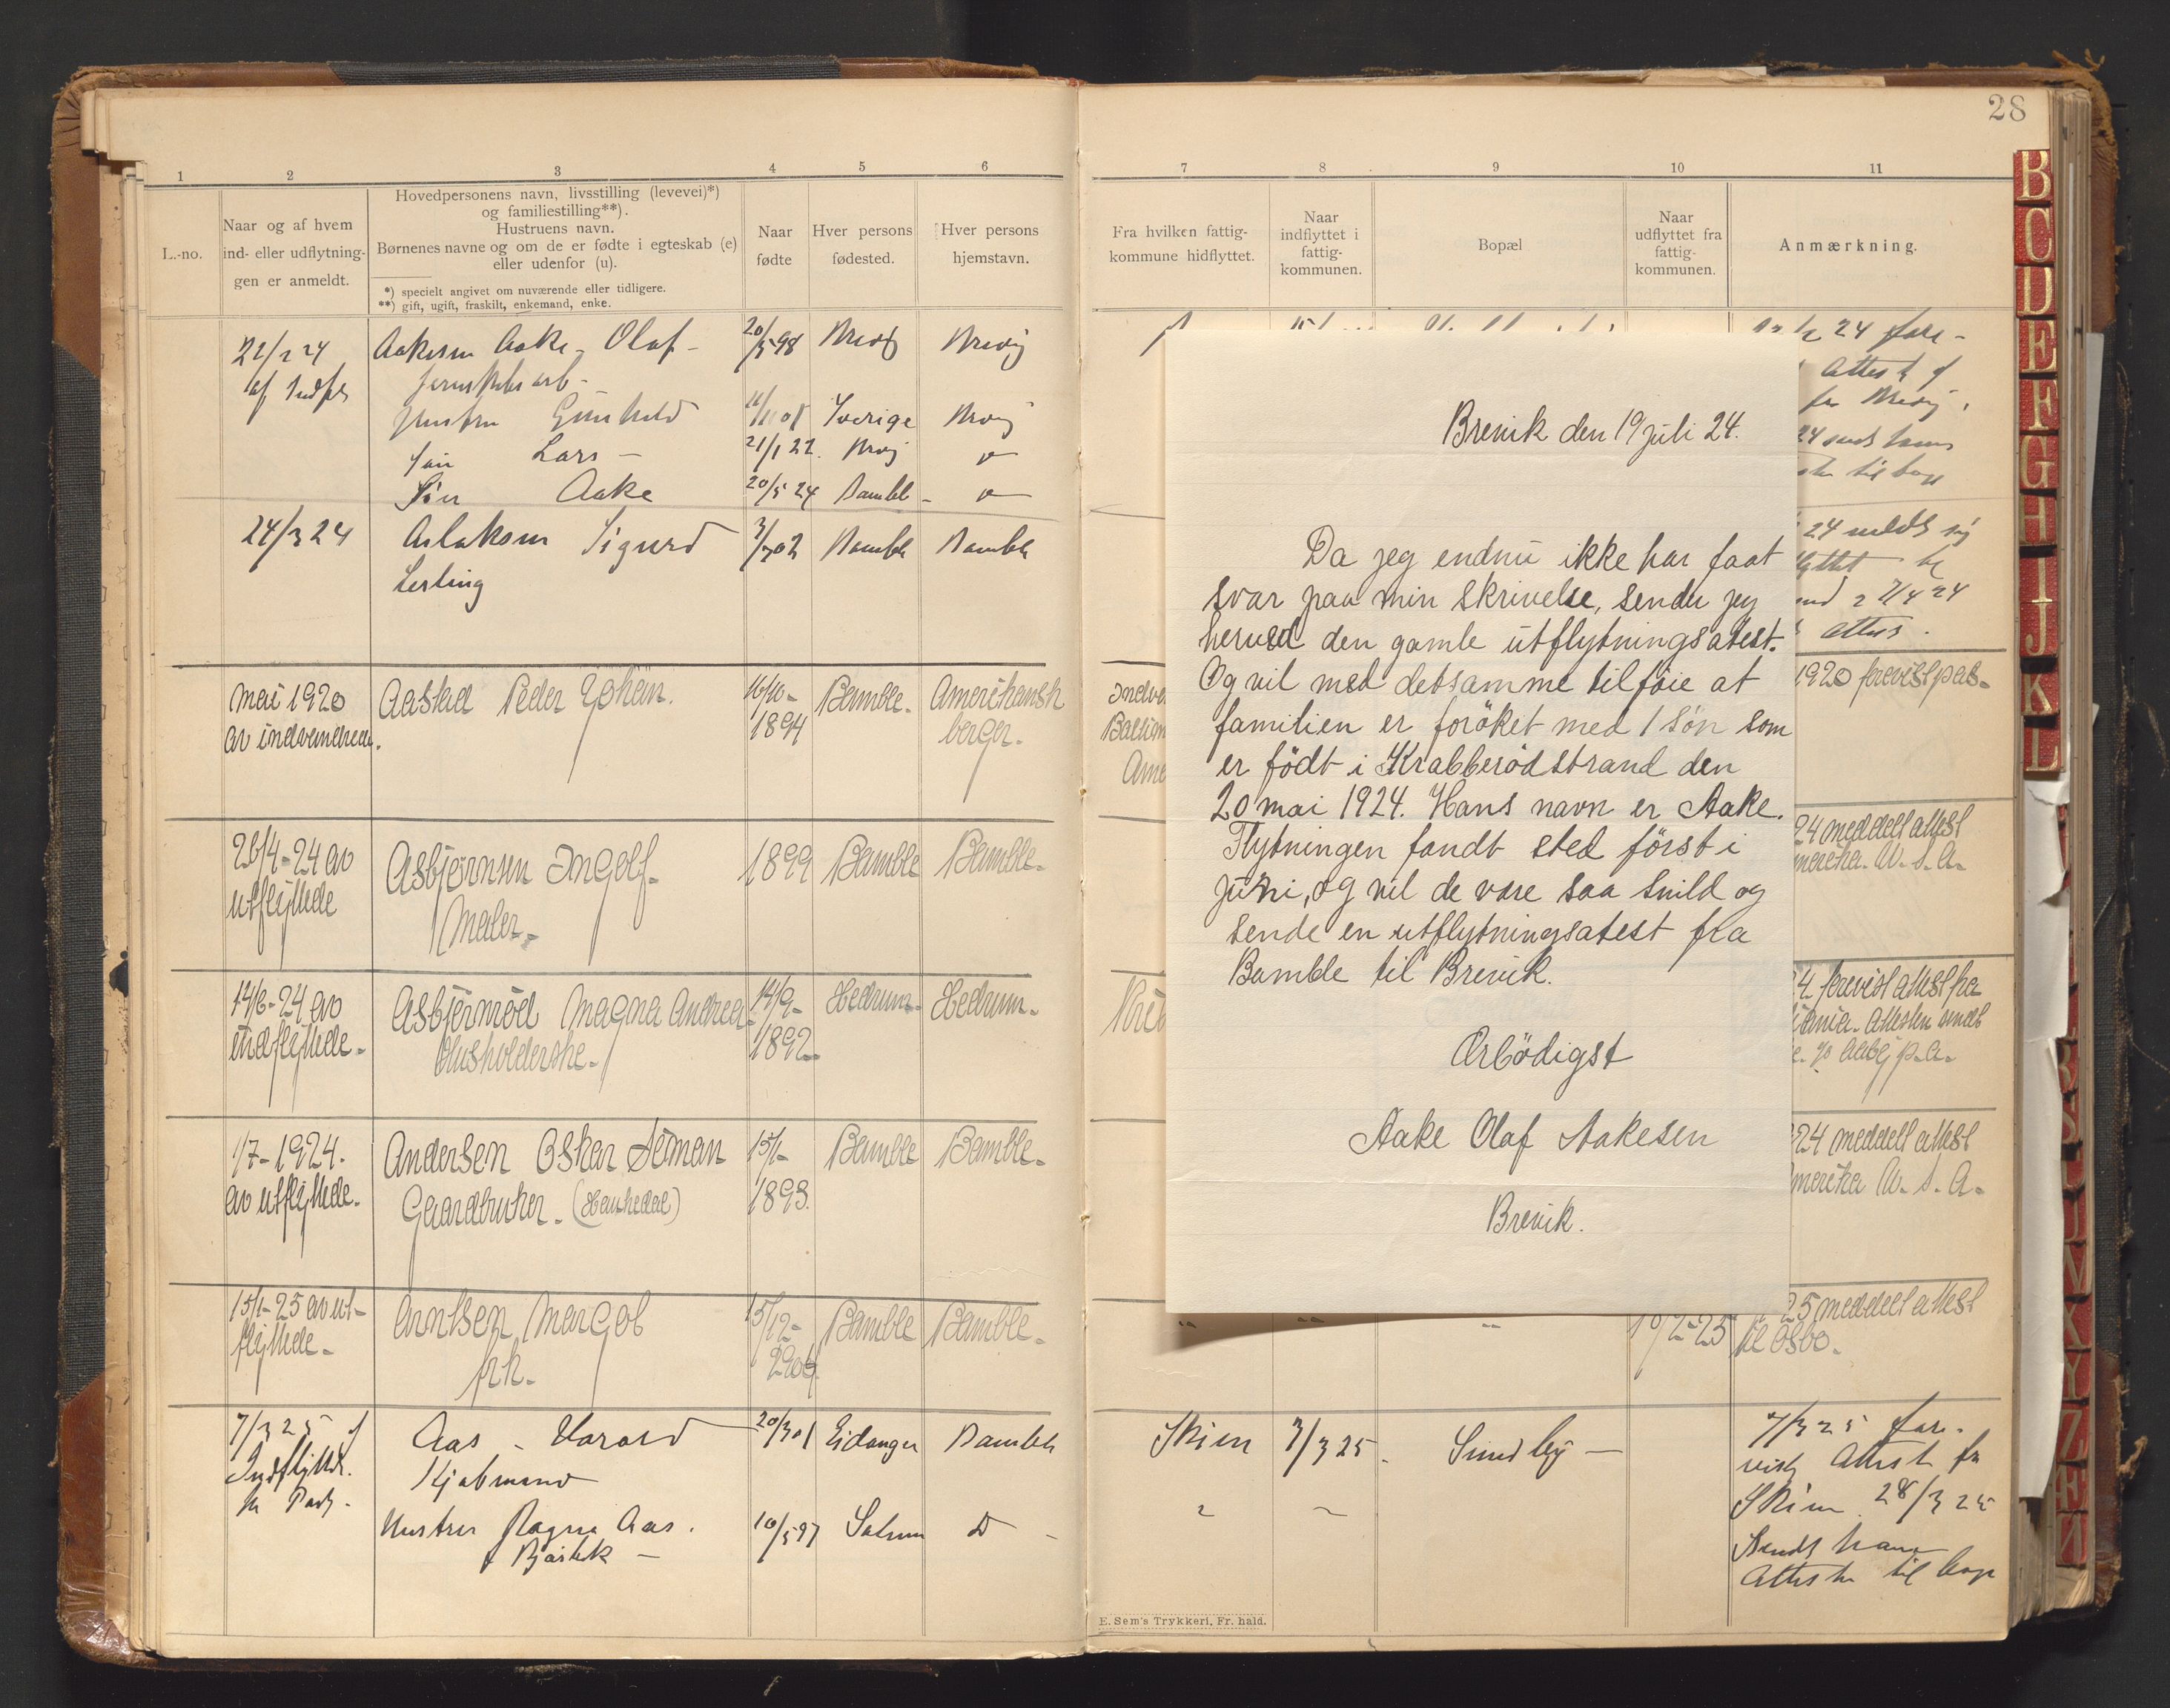 28
1 2 3 4 5 6
L.-no.
Naar og af hvem
ind- eller udflytnin-
gen er anmeldt.
Hovedpersonens navn, livsstilling (levevei)*)
og familiestilling**).
Hustruens navn.
Børnenes navne og om de er fødte i egteskab (e)
eller udenfor (u).
*) specielt angivet om nuværende eller tidligere.
**) gift, ugift, fraskilt, enkemand, enke.
Naar
fødte
Hver persons
fødested.
Hver persons
hjemstavn.
22/2 24 Aakesen Aake Olaf - 20/5 98 Brevig Brevig
af Indfl
Hustru Gunhild 01 Sverige Brevig
Søn Lars - 21/1 22. Brevig
Søn Aake 20/5 24 Bamble -
24/3 24 Aslaksen Sigurd 3/7 02 Bamble Bamble
Lærling
mai 1920 Aastad Peder Johan. 16/10- Bamble. Amerikansk
av indvandrede. 1894 berger.
26/4-24 av Asbjørnsen Ingolf. 1899 Bamble Bamble.
utflyttede Maler.
14/6-24 av Asbjørnrød Magna Andrea 14/9- Hedrum. Hedrum.
indflyttede. Husholderske. 1892.
1/7-1924. Andersen Oskar Seman 15/1- Bamble Bamble.
av utflyttede. Gaardbruker. 1893.
15/1-25 av ut- Arntsen, Margot 15/12- Bamble Bamble.
flyttede. frk.
7/3 25 f Aas - Harald 20/3 01 Eidanger Bamble
Indflyttede.
Hustru Ragna Aas. 10/5 97 Solum D -
7 8 9 10 11
Fra hvilken fattig-
kommune hidflyttet.
Naar
indflyttet i
fattig-
kommunen.
Bopæl
Naar
udflyttet fra
fattig-
kommunen.
Anmærkning.
24 fore-
Attest f
fra Brevig.
24 sendt hans
til bage
24 meldt sig
24
Attest.
1920 forevist pas.
24 meddelt attest
merika. U. S. A.
4 forevist attest fra
ania. Attesten sendt
24 meddelt attest
merika U. S. A.
10/2-25 25 meddelt attest
til Oslo.
Skien 7/3 25. Sundby - 7/3 25 fore-
vist Attest fra
Skien 28/3 25
Sendt hans
Attest til bage
E. Sem's Trykkeri, Fr. hald.
Brevik den 19 juli 24.
Da jeg endnu ikke har faat
svar paa min skrivelse, sender jeg
herved den gamle utflytningsatest.
Og vil med detsamme tilføie at
familien er forøket med 1 søn som
er født i Krabberødstrand den
20 mai 1924. Hans navn er Aake.
Flytningen fandt sted først i
juni, og vil de være saa snild og
sende en utflytningsatest fra
Bamble til Brevik.
Ærbødigst
Aake Olaf Aakesen
Brevik.
B
C
D
E
F
G
H
I
J
K
L